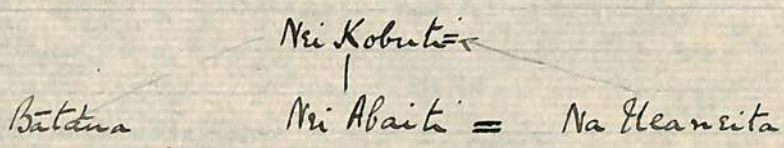 Nei Kobuti =
Batāua Nei Abaiti = Na Ueaneita